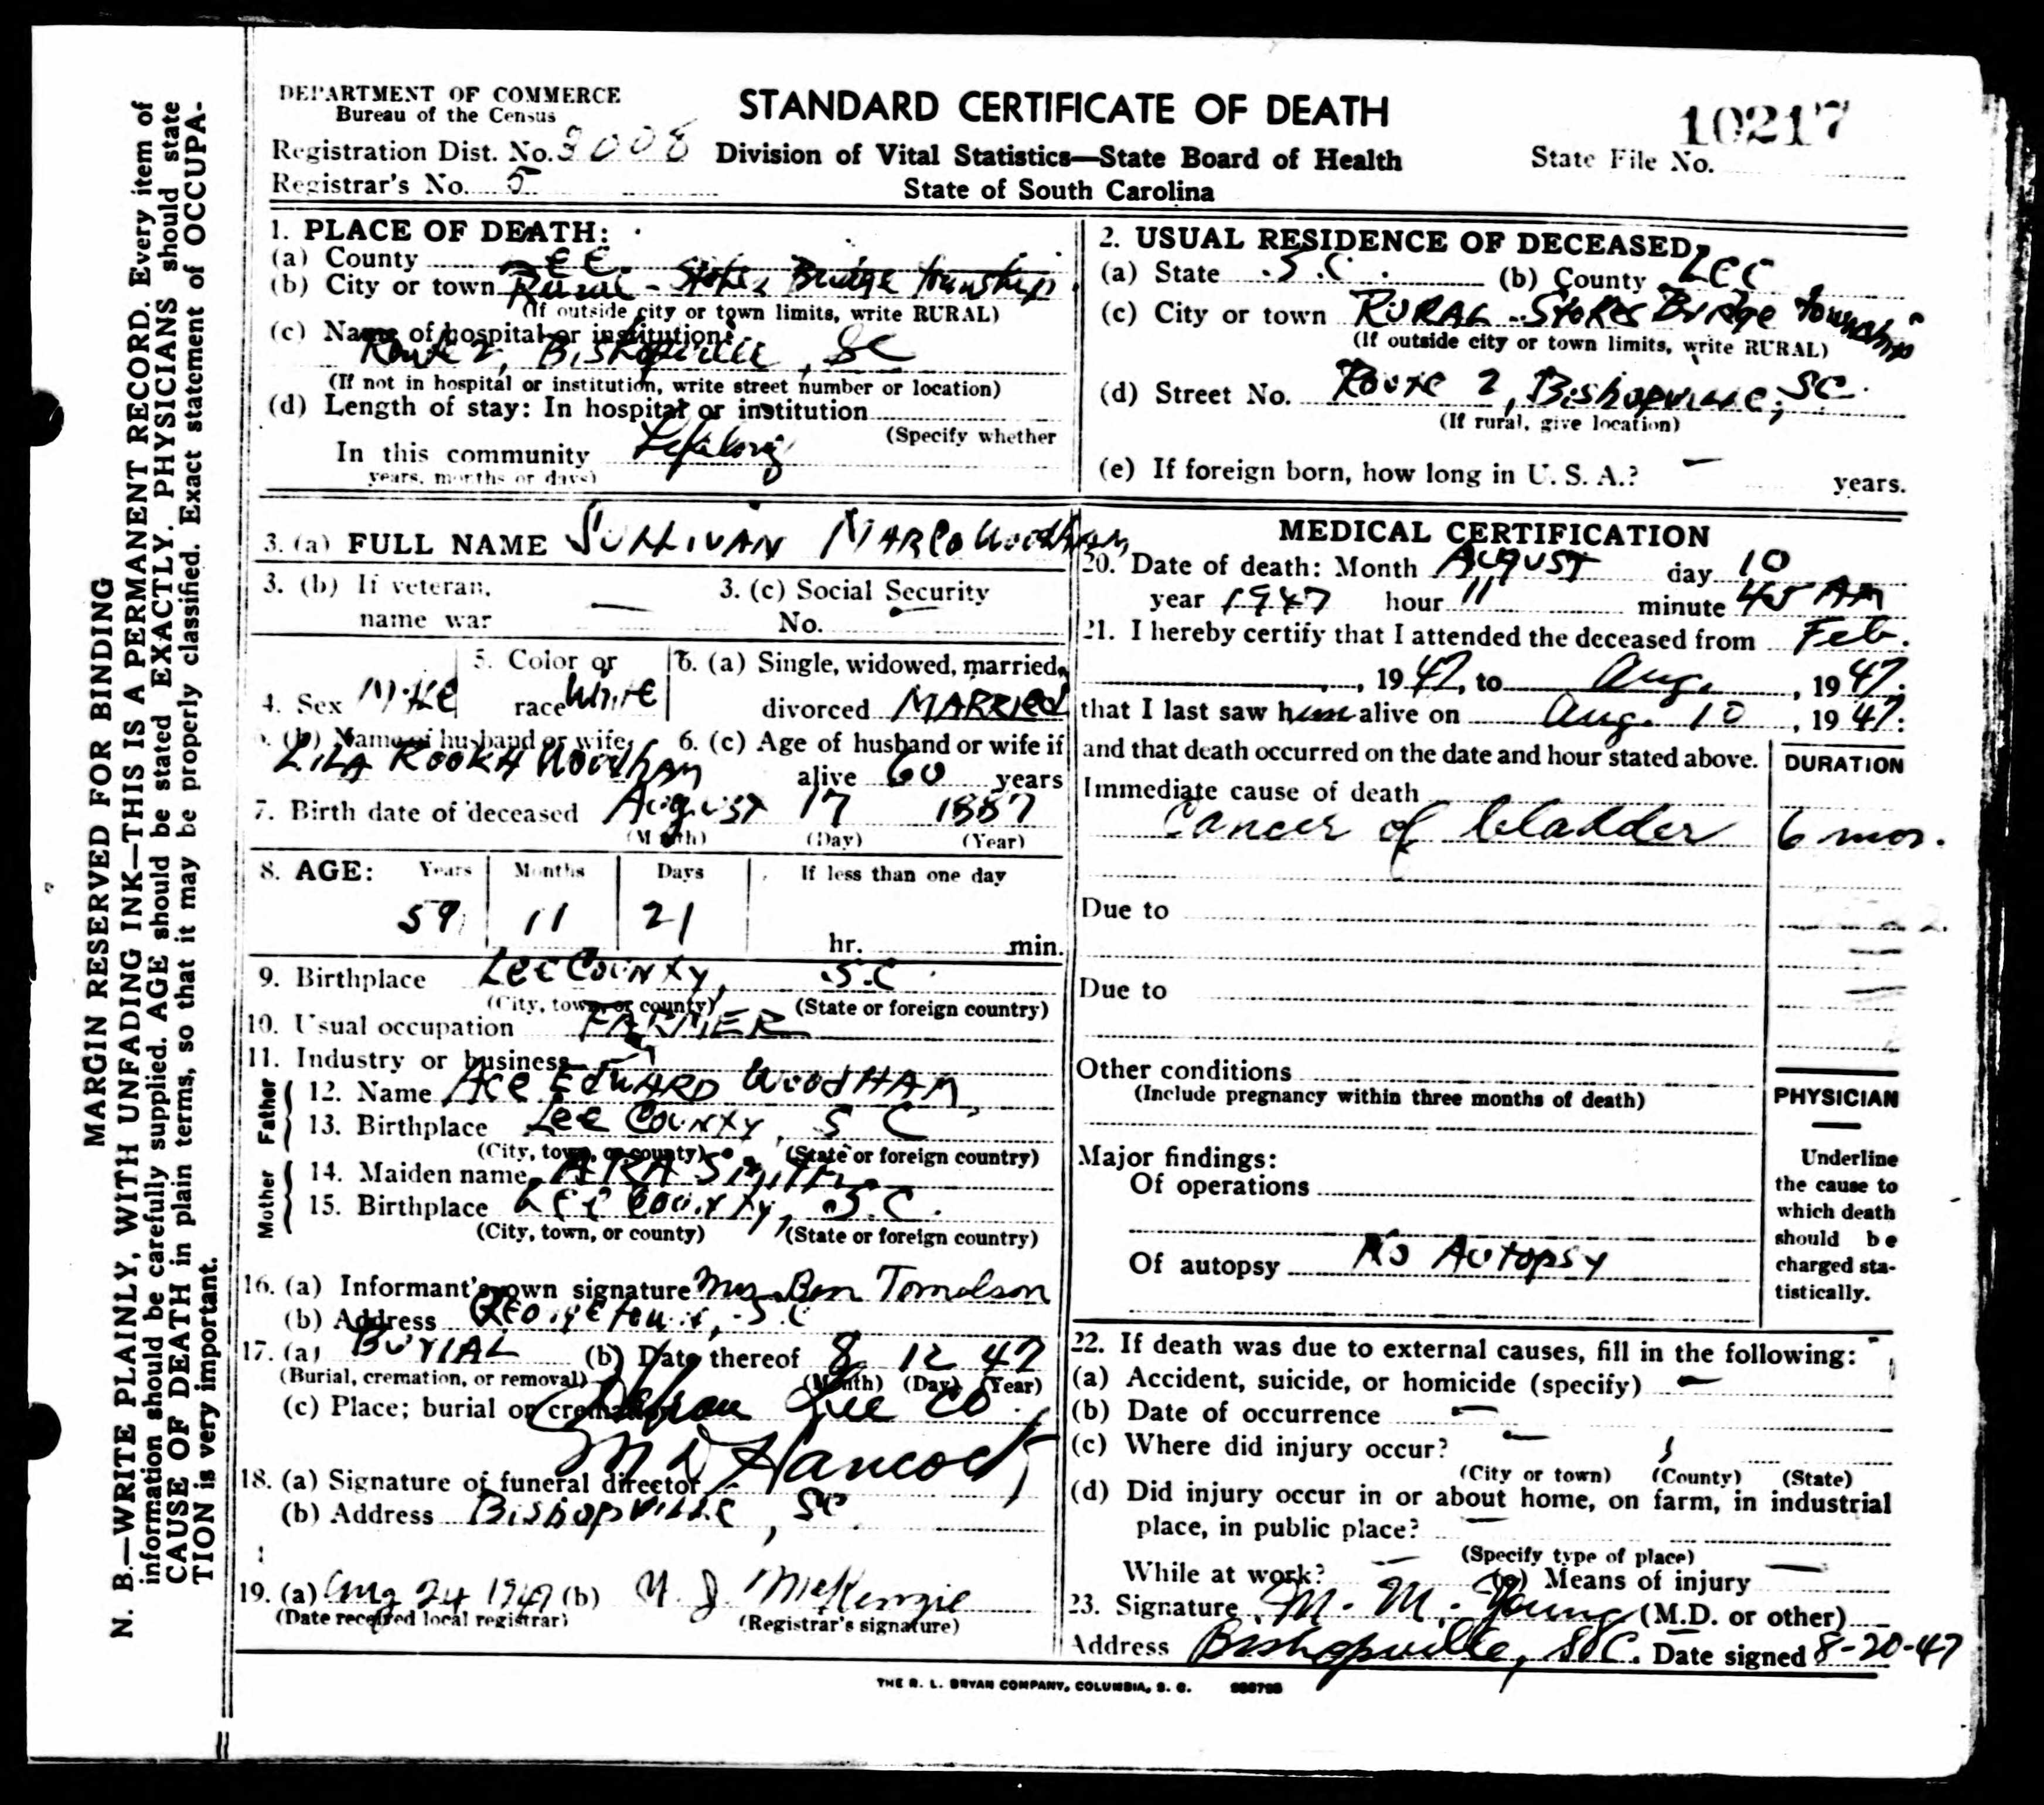 MARGIN RESERVED FOR BINDING
N. B.—WRITE PLAINLY, WITH UNFADING INK—THIS IS A PERMANENT RECORD. Every item of
information should be carefully supplied. AGE should be stated EXACTLY. PHYSICIANS should state
CAUSE OF DEATH in plain terms, so that it may be properly classified. Exact statement of OCCUPA-
TION is very important.
DEPARTMENT OF COMMERCE
Bureau of the Census
STANDARD CERTIFICATE OF DEATH
10217
Registration Dist. No. 3008
Division of Vital Statistics—State Board of Health
State File No.
Registrar's No. 5
State of South Carolina
1. PLACE OF DEATH:
(a) County LEE
(b) City or town Rural - Stokes Bridge township
(If outside city or town limits, write RURAL)
(c) Name of hospital or institution:
Route 2, Bishopville, SC
(If not in hospital or institution, write street number or location)
(d) Length of stay: In hospital or institution
(Specify whether
In this community Lifelong
years, months or days)
2. USUAL RESIDENCE OF DECEASED:
(a) State S.C. (b) County Lee
(c) City or town RURAL - Stokes Bridge township
(If outside city or town limits, write RURAL)
(d) Street No. Route 2, Bishopville, SC.
(If rural, give location)
(e) If foreign born, how long in U. S. A.? — years.
3. (a) FULL NAME SULLIVAN MARCO Woodham
3. (b) If veteran, 3. (c) Social Security
name war — No. —
4. Sex Male 5. Color or race White 6. (a) Single, widowed, married, divorced MARRIED
6. (b) Name of husband or wife 6. (c) Age of husband or wife if
LILA ROOKH Woodham alive 60 years
7. Birth date of deceased August 17 1887
(Month) (Day) (Year)
8. AGE: Years Months Days If less than one day
59 11 21 hr. min.
9. Birthplace Lee County, S.C.
(City, town, or county) (State or foreign country)
10. Usual occupation FARMER
11. Industry or business
Father
12. Name Ace EDWARD WOODHAM
13. Birthplace Lee County, S C
(City, town, or county) (State or foreign country)
Mother
14. Maiden name ARA Smith
15. Birthplace Lee County, S.C.
(City, town, or county) (State or foreign country)
16. (a) Informant's own signature Mrs. Ben Tomolson
(b) Address Georgetown, S.C
17. (a) BURIAL (b) Date thereof 8 12 47
(Burial, cremation, or removal) (Month) (Day) (Year)
(c) Place; burial or cremation Lee Co.
18. (a) Signature of funeral director M D Hancock
(b) Address Bishopville, SC.
19. (a) Aug 24 1947 (b) McKenzie
(Date received local registrar) (Registrar's signature)
MEDICAL CERTIFICATION
20. Date of death: Month August day 10
year 1947 hour 11 minute 45 AM
21. I hereby certify that I attended the deceased from Feb.
, 1947, to Aug. , 1947;
that I last saw him alive on Aug. 10, 1947;
and that death occurred on the date and hour stated above.
DURATION
Immediate cause of death
Cancer of bladder 6 mos.
Due to
Due to
Other conditions
(Include pregnancy within three months of death)
PHYSICIAN
Major findings:
Of operations
Of autopsy No Autopsy
Underline
the cause to
which death
should be
charged sta-
tistically.
22. If death was due to external causes, fill in the following:
(a) Accident, suicide, or homicide (specify) —
(b) Date of occurrence —
(c) Where did injury occur? —
(City or town) (County) (State)
(d) Did injury occur in or about home, on farm, in industrial
place, in public place? —
(Specify type of place)
While at work? — (e) Means of injury —
23. Signature M. M. Young (M.D. or other)
Address Bishopville, S.C. Date signed 8-20-47
THE R. L. BRYAN COMPANY, COLUMBIA, S. C.